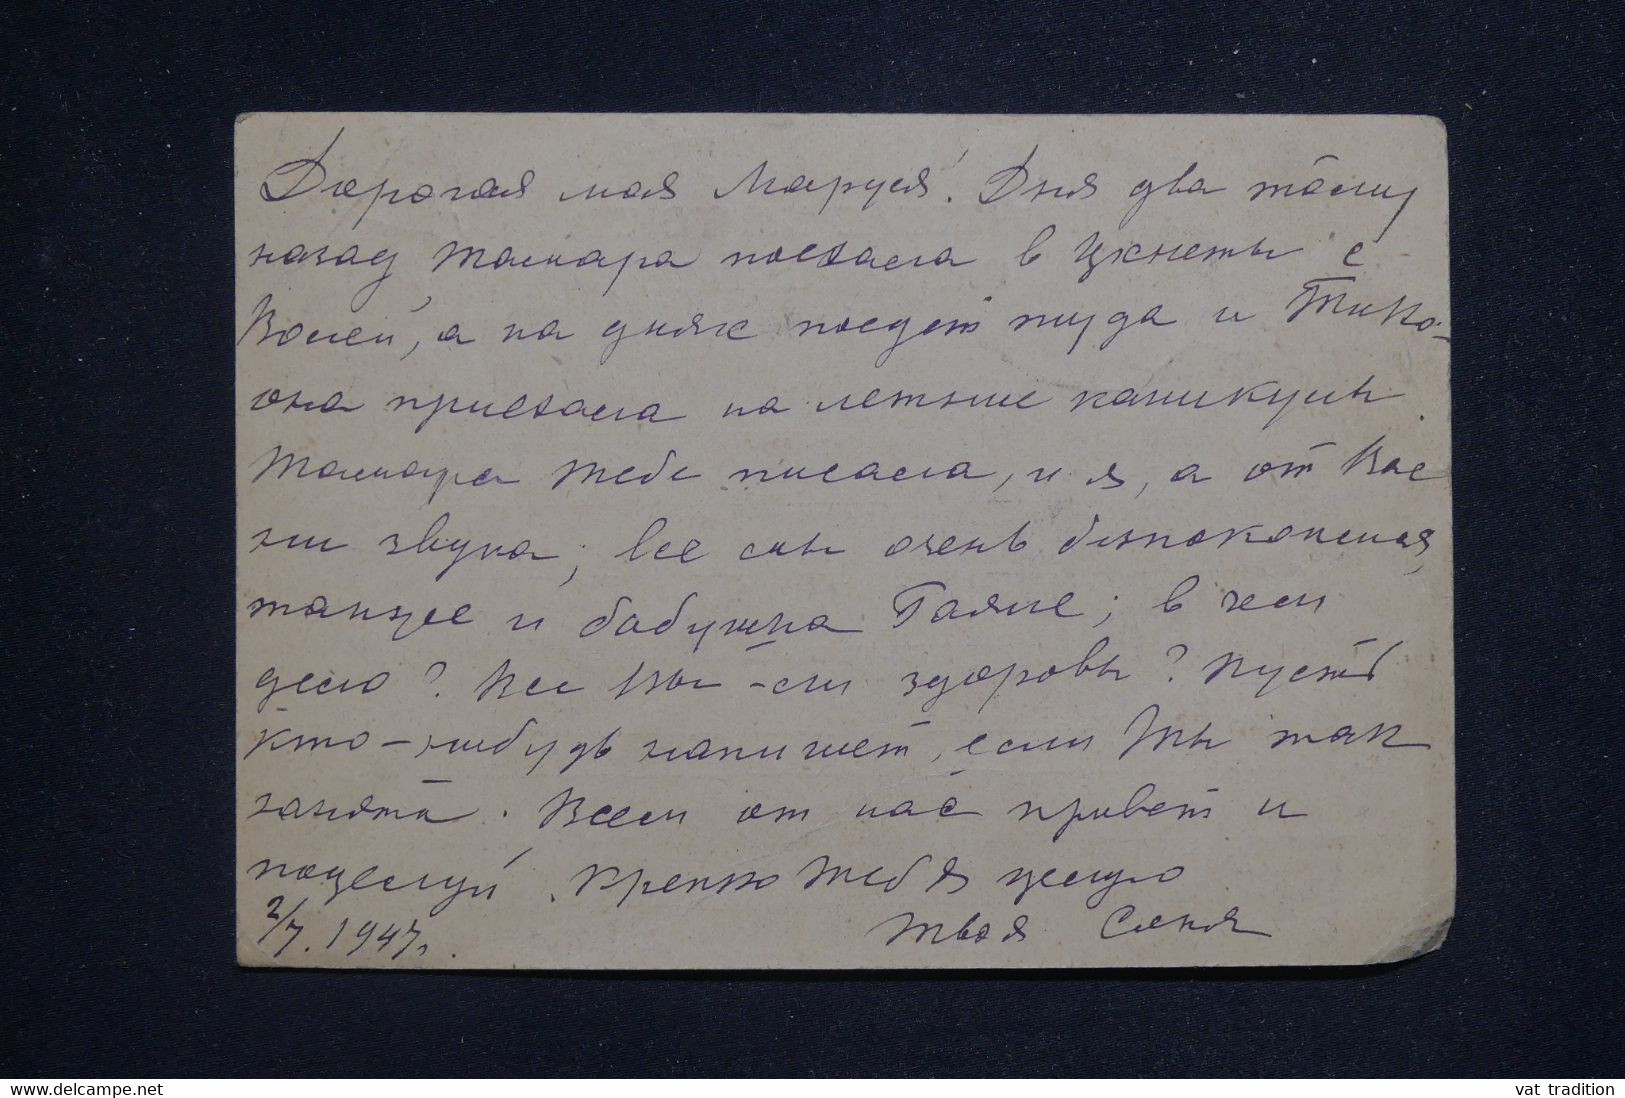 Дорогая моя Маруся! Дня два тому
назад Тамара поехала в Цхнеты с
Волей, а на днях поедет туда и Тико-
она приехала на летние каникулы.
Тамара Тебе писала, и я, а от Вас
ни звука; все мы очень беспокоимся,
также и бабушка Гаяне; в чем
дело? Все Вы-ли здоровы? Пусть
кто-нибудь напишет, если Ты так
занята. Всем от нас привет и
поцелуй. Крепко Тебя целую
2/7. 1947г. Твоя Соня
www.delcampe.net
vat tradition